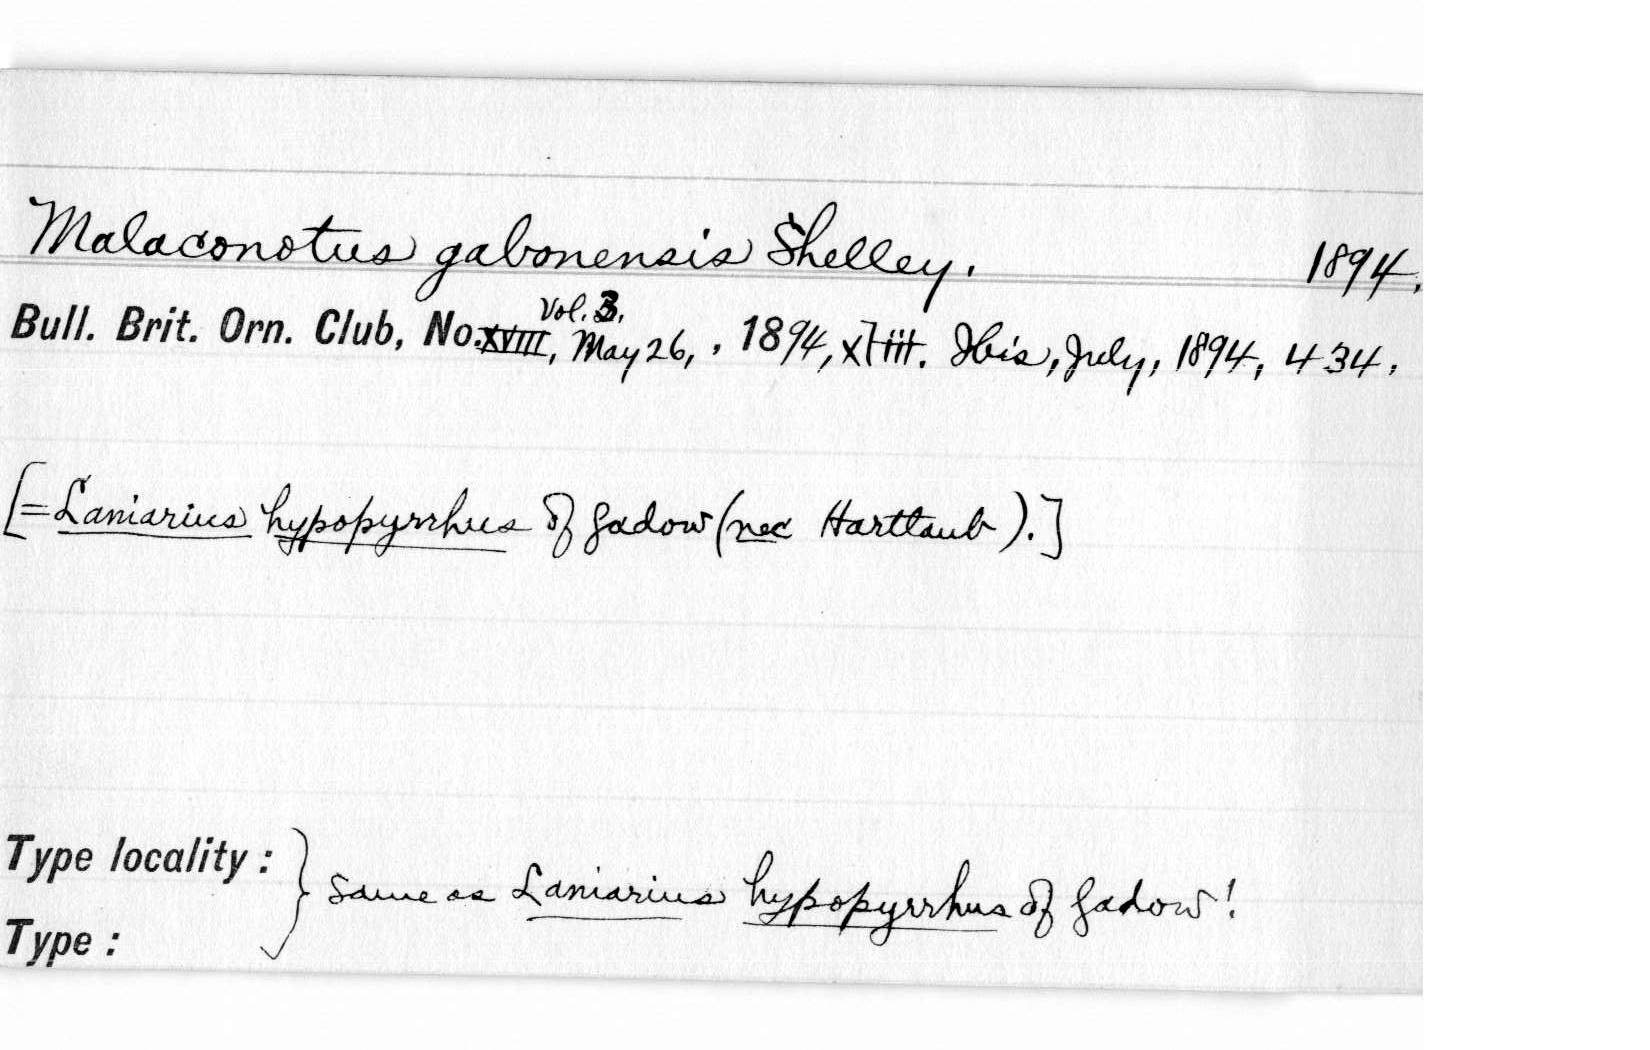 Malaconotus gabonensis Shelley. 1894.
Vol. 3.
Bull. Brit. Orn. Club, No. XVIII, May 26, , 1894, xliii. Ibis, July, 1894, 434.
[=Laniarius hypopyrrhus of Gadow (nec Hartlaub).]
Type locality :
Same as Laniarius hypopyrrhus of Gadow!
Type :